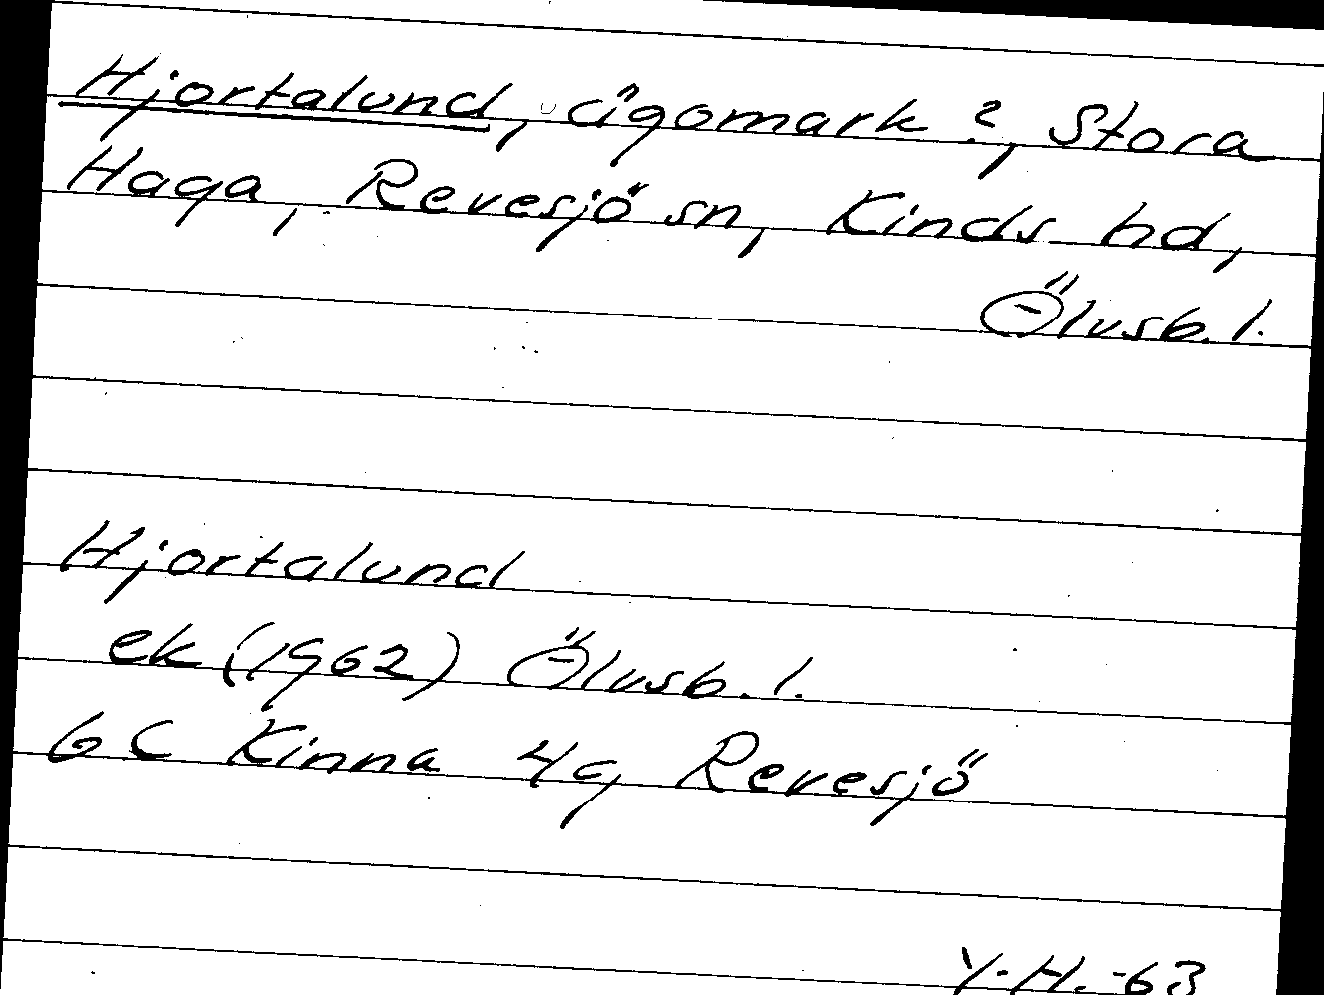 Hjortalund, ägomark?, Stora
Haga, Revesjö sn, Kinds hd,
Älvsb. l.
Hjortalund
ek (1962) Älvsb. l.
6C Kinna 4g, Revesjö
Y.H. -63